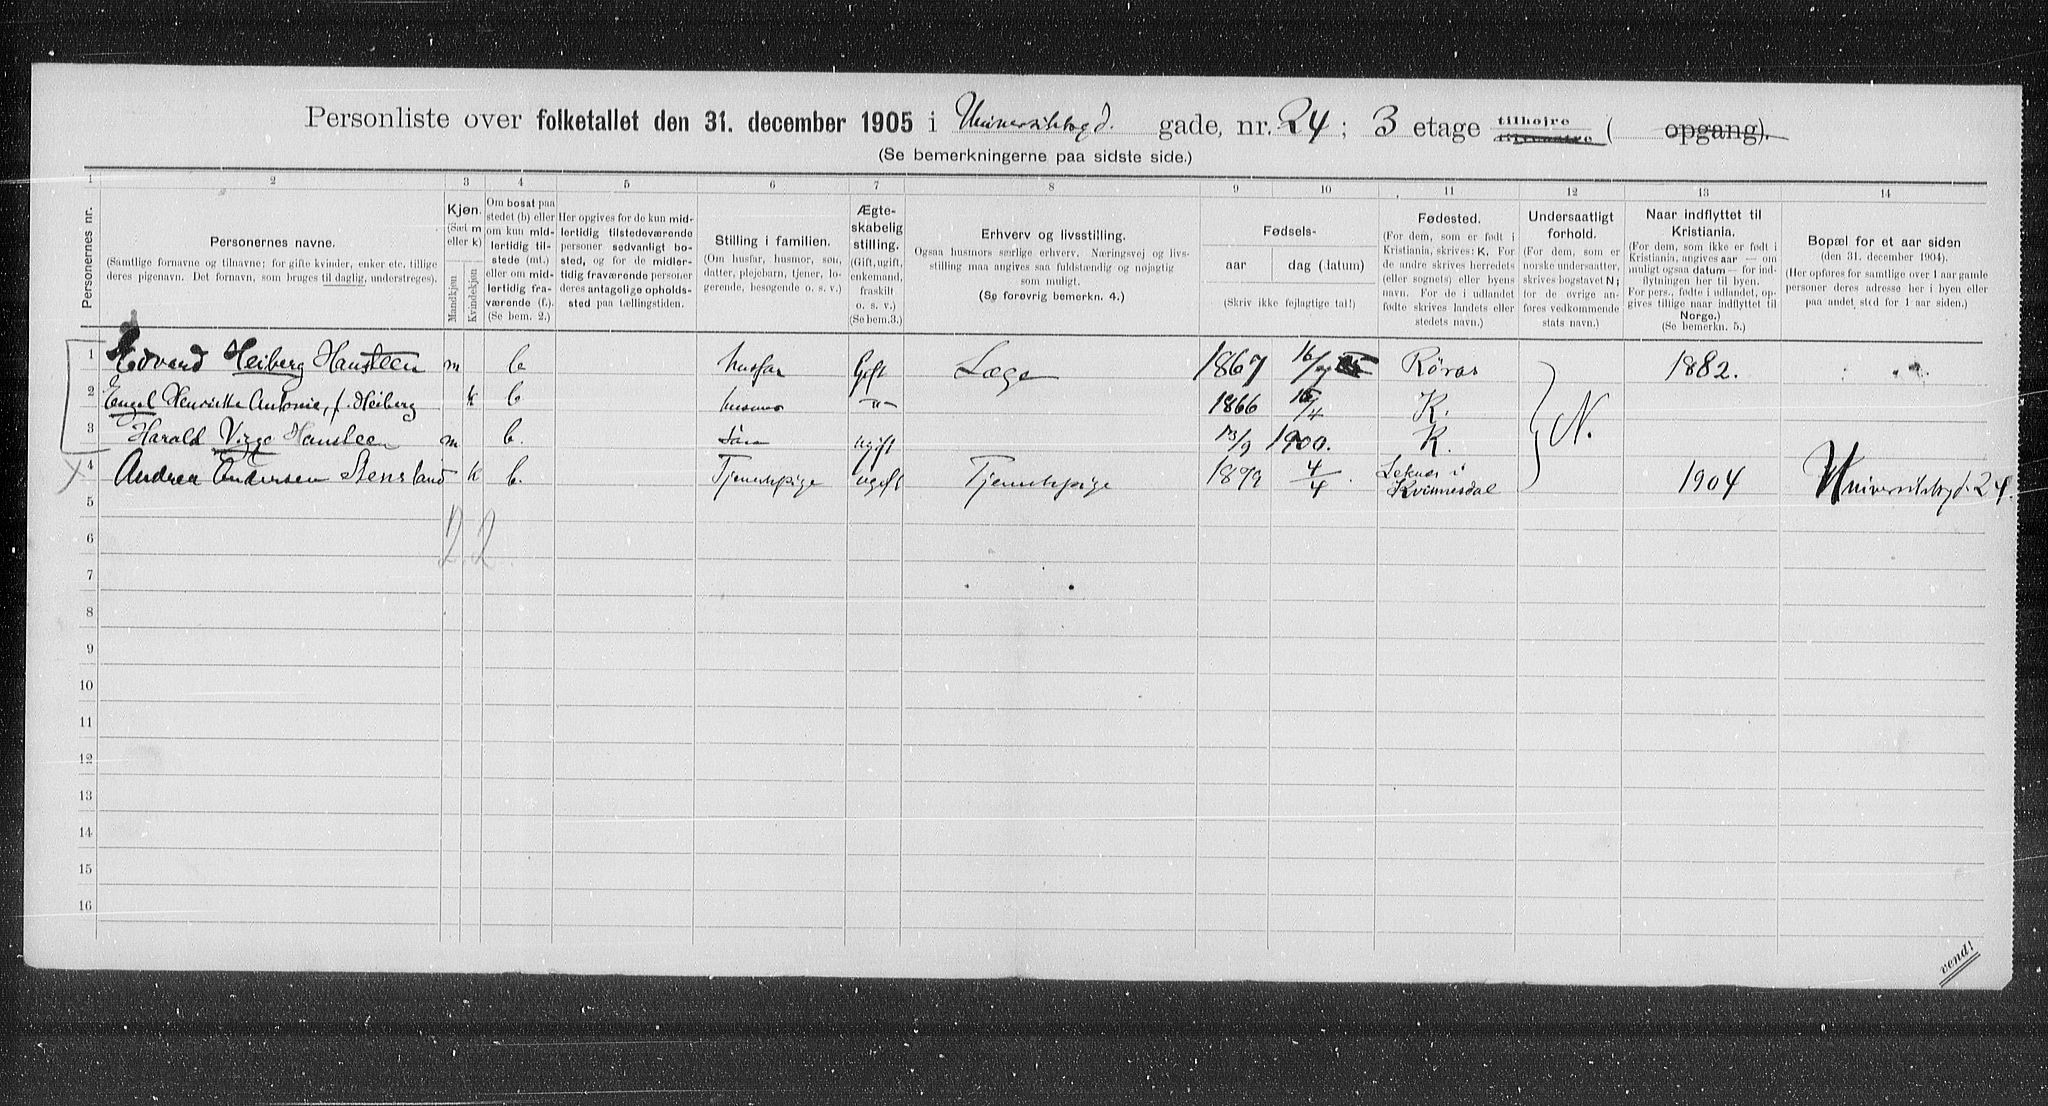 Personliste over folketallet den 31. december 1905 i Universitetsgd. gade, nr. 24; 3 etage tilhøjre tilvenstre ( opgang).
(Se bemerkningerne paa sidste side.)
1 2 3 4 5 6 7 8 9 10 11 12 13 14
Personernes nr.
Personernes navne.
(Samtlige fornavne og tilnavne; for gifte kvinder, enker etc. tillige
deres pigenavn. Det fornavn, som bruges til daglig, understreges).
Kjøn.
(Sæt m
eller k)
Mandkjøn
Kvindekjøn
Om bosat paa
stedet (b) eller
om kun mid-
lertidig til-
stede (mt.)
eller om mid-
lertidig fra-
værende (f.).
(Se bem. 2.)
Her opgives for de kun mid-
lertidig tilstedeværende
personer sedvanligt bo-
sted, og for de midler-
tidig fraværende personer
deres antagelige opholds-
sted paa tællingstiden.
Stilling i familien.
(Om husfar, husmor, søn,
datter, plejebarn, tjener, lo-
gerende, besøgende o. s. v.)
Ægte-
skabelig
stilling.
(Gift, ugift,
enkemand,
fraskilt
o. s. v.)
(Se bem.3.)
Erhverv og livsstilling.
Ogsaa husmors særlige erhverv. Næringsvej og livs-
stilling maa angives saa fuldstændig og nøjagtig
som muligt.
(Se forøvrig bemerkn. 4.)
Fødsels-
aar dag (datum)
(Skriv ikke fejlagtige tal!)
Fødested.
(For dem, som er født i
Kristiania, skrives: K. For
de andre skrives herredets
(eller sognets) eller byens
navn. For de i udlandet
fødte skrives landets eller
stedets navn.)
Undersaatligt
forhold.
(For dem, som er
norske undersaatter,
skrives bogstavet N;
for de øvrige an-
føres vedkommende
stats navn.)
Naar indflyttet til
Kristiania.
(For dem, som ikke er født i
Kristiania, angives aar — om
muligt ogsaa datum — for ind-
flytningen her til byen.
For pers., fødte i udlandet, op-
gives tillige naar indflyttet til
Norge.)
(Se bemerkn. 5.)
Bopæl for et aar siden
(den 31. december 1904).
(Her opføres for samtlige over 1 aar gamle
personer deres adresse her i byen eller
paa andet sted for 1 aar siden.)
1 Edvard Heiberg Hansteen m b husfar Gift Læge 1867 16/ Røros 1882.
2 Engel Henriette Antonie, f. Heiberg k b husmor –"– 1866 /4 K.
3 Harald Viggo Hansteen m b. Søn ugift 13/9 1900. K. N.
4 Andrea Andersen Stensland k b. Tjenestepige ugift Tjenestepige 1879 4/4. i Kvinnesdal 1904 Universitetsgd. 24.
5
2. 2
6
7
8
9
10
11
12
13
14
15
16
vend!